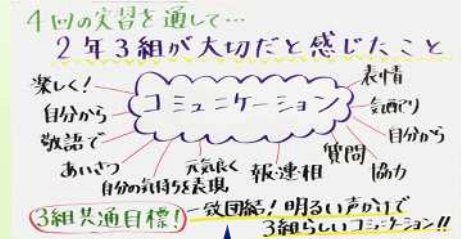 4回の実習を通して…
2年3組が大切だと感じたこと
コミュニケーション
楽しく!
自分から
敬語で
あいさつ
自分の気持ちを表現
元気良く
報・連・相
質問
協力
自分から
気配り
表情
3組共通目標!
一致団結!明るい声かけで
3組らしいコミュニケーション!!